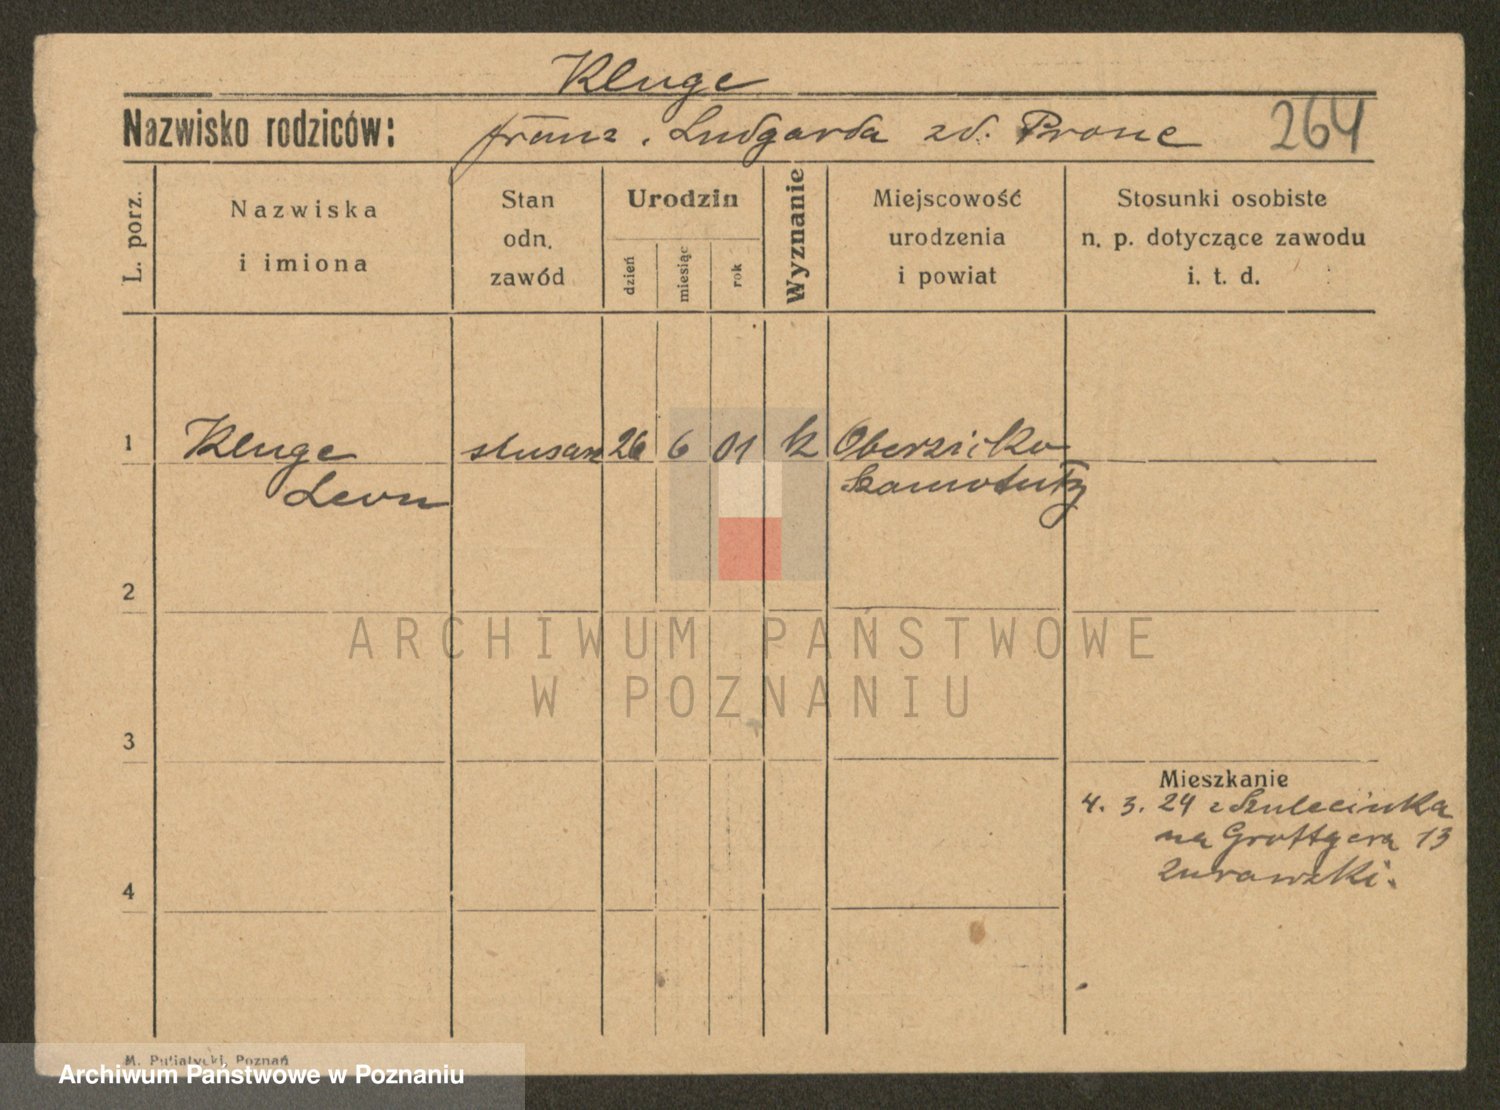 Kluge
Nazwisko rodziców: franz. Ludgarda zd. Prone 264
L. porz.
Nazwiska
i imiona
Stan
odn.
zawód
Urodzin
dzień
miesiąc
rok
Wyznanie
Miejscowość
urodzenia
i powiat
Stosunki osobiste
n. p. dotyczące zawodu
i. t. d.
1 Kluge ślusarz 26 6 01 k Oberzicko
Leon Szamotuły
2
ARCHIWUM PAŃSTWOWE
W POZNANIU
3
Mieszkanie
4. 3. 24 z Szulecinka
na Grottgera 13
Zurawski.
4
M. Putiatycki, Poznań
Archiwum Państwowe w Poznaniu